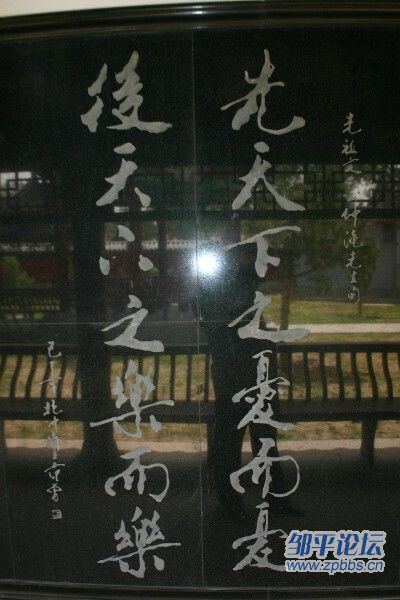 先祖文
仲淹先生句
先天下之憂而憂
後天下之樂而樂
邹平论坛
www.zpbbs.cn